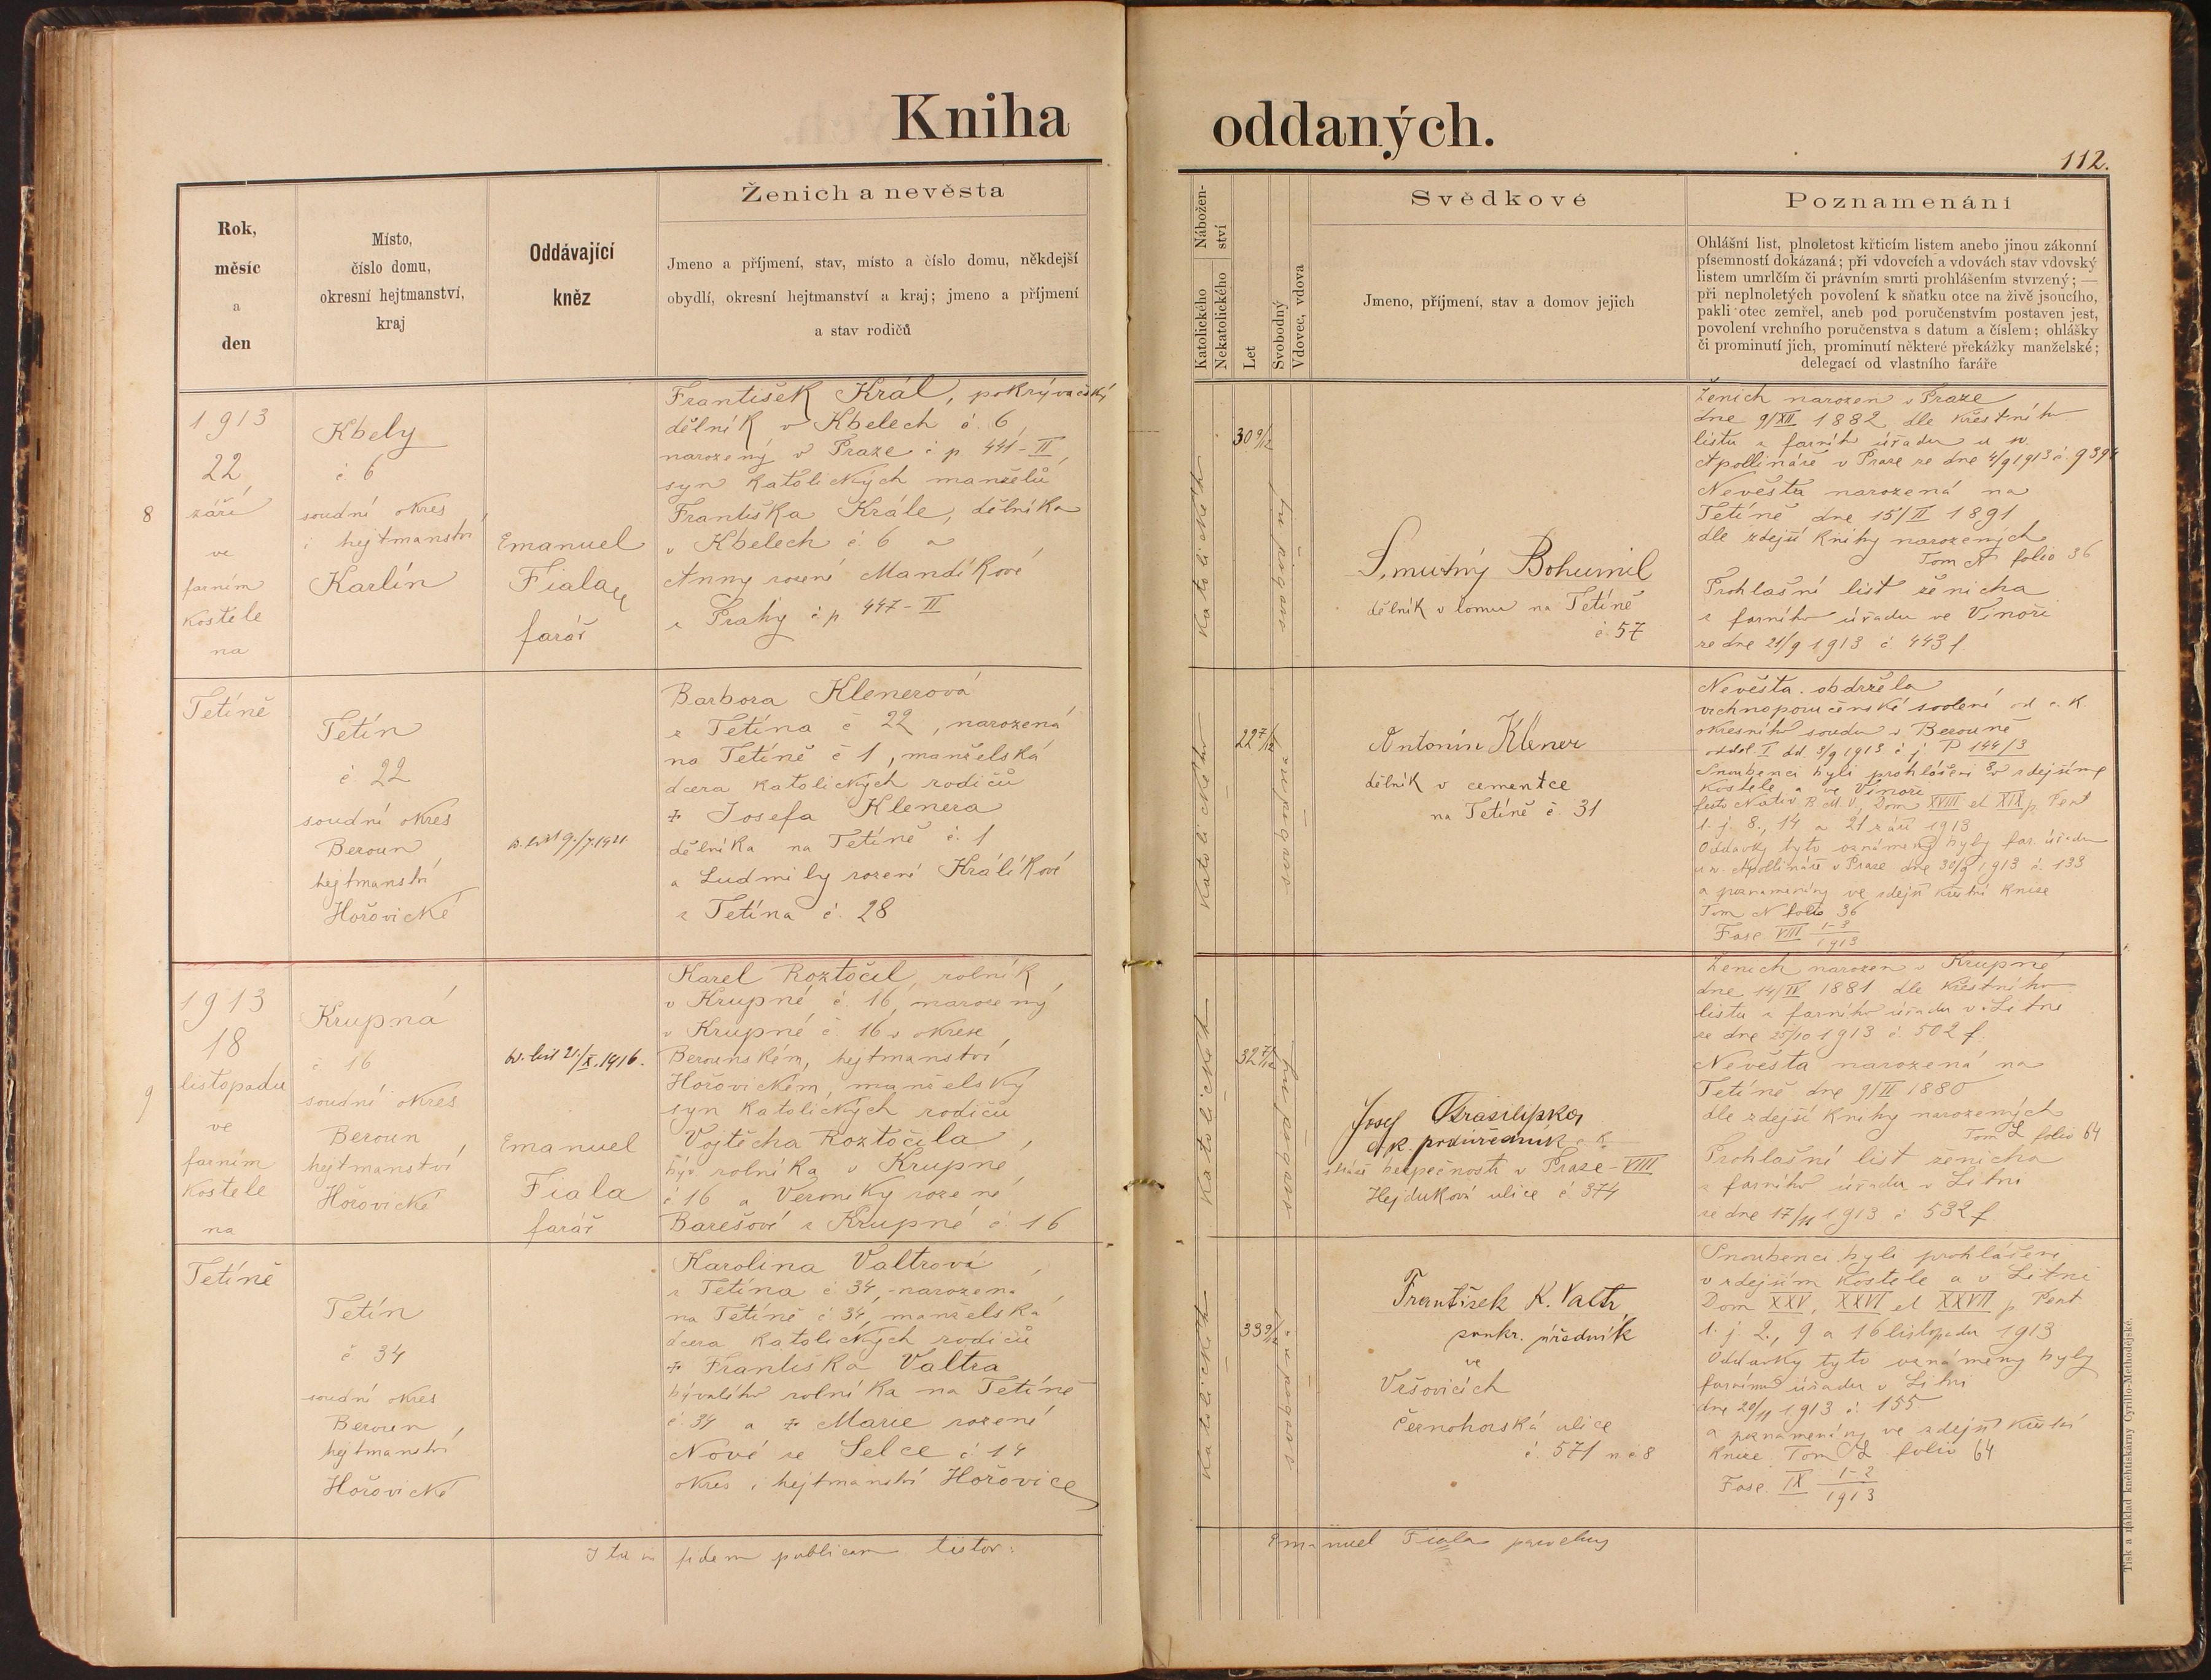 Kniha
oddaných.
112.
Rok,
měsíc
a
den
Místo,
číslo domu,
okresní hejtmanství,
kraj
Oddávající
kněz
Ženich a nevěsta
Jmeno a příjmení, stav, místo a číslo domu, někdejší
obydlí, okresní hejtmanství a kraj; jmeno a příjmení
a stav rodičů
Nábožen-
ství
Katolického
Nekatolického
Let
Svobodný
Vdovec, vdova
Svědkové
Jmeno, příjmení, stav a domov jejich
Poznamenání
Ohlášní list, plnoletost křticím listem anebo jinou zákonní
písemností dokázaná; při vdovcích a vdovách stav vdovský
listem umrlčím či právním smrti prohlášením stvrzený; —
při neplnoletých povolení k sňatku otce na živě jsoucího,
pakli otec zemřel, aneb pod poručenstvím postaven jest,
povolení vrchního poručenstva s datum a číslem; ohlášky
či prominutí jich, prominutí některé překážky manželské;
delegací od vlastního faráře
8
1913
22
září
ve
farním
kostele
na
Tetíně
Kbely
č 6
soudní okres
i hejtmanství
Karlín
Emanuel
Fiala
farář
František Král, pokrývačský
dělník v Kbelech č. 6,
narozený v Praze č p. 441-II,
syn katolických manželů
Františka Krále, dělníka
v Kbelech č. 6 a
Anny rozené Mandíkové
z Prahy č p. 447-II
katolického
30 9/12
svobodný
Smutný Bohumil
dělník v lomu na Tetíně
č. 57
Ženich narozen v Praze
dne 9/XII 1882 dle křestního
listu z farního úřadu u sv.
Apollináře v Praze ze dne 4/9 1913 č.
Nevěsta narozená na
Tetíně dne 15/II 1891
dle zdejší knihy narozených
Tom N folio 36
Prohlašní list ženicha
z farního úřadu ve Vinoři
ze dne 21/9 1913 č 443 f
Tetín
č. 22
soudní okres
Beroun
hejtmanství
Hořovické
19./7. 1921.
Barbora Klenerová
z Tetína č 22, narozená
na Tetíně č 1, manželská
dcera katolických rodičů
+ Josefa Klenera
dělníka na Tetíně č. 1
a Ludmily rozené Králíkové
z Tetína č. 28
katolického
22 7/12
svobodná
Antonín Klener
dělník v cementce
na Tetíně č. 31
Nevěsta obdržela
vrchnoporučenské svolení od c. k.
okresního soudu v Berouně
odděl. I dd. 3/9 1913 č j. P 144/3
Snoubenci byli prohlášeni v zdejším
kostele a ve Vinoři
festo Nativ. B. M. V., Dom XVIII et XIX p. Pent
t. j. 8., 14 a 21 září 1913
Oddavky tyto oznámeny byly far. úřadu
u sv. Apollináře v Praze dne 30/9 1913 č. 133
a poznamenány ve zdejší křestní knize
Tom N folio 36
Fasc VIII 1-3
1913
9
1913
18
listopadu
ve
farním
kostele
na
Tetíně
Krupná
č 16
soudní okres
Beroun
hejtmanství
Hořovické
kř. list 21/X. 1916.
Emanuel
Fiala
farář
Karel Roztočil, rolník
v Krupné č. 16, narozený
v Krupné č. 16 v okrese
Berounském, hejtmanství
Hořovickém, manželský
syn katolických rodičů
Vojtěcha Roztočila,
býv rolníka v Krupné
č 16 a Veroniky rozené
Barešové z Krupné č 16
katolického
32 7/12
svobodný
Josef
c. k. podúředník c. k.
stráže bezpečnosti v Praze-VIII
Hejdukova ulice č. 374
Ženich narozen v Krupné
dne 14/IV 1881 dle křestního
listu z farního úřadu v Litni
ze dne 25/10 1913 č 502 f.
Nevěsta narozená na
Tetíně dne 9/II 1880
dle zdejší knihy narozených
Tom L folio 64
Prohlašní list ženicha
z farního úřadu v Litni
ze dne 17/11 1913 č 532 f.
Tetín
č. 34
soudní okres
Beroun
hejtmanství
Hořovické
Karolina Valtrová
z Tetína č. 34, narozená
na Tetíně č 34, manželská
dcera katolických rodičů
+ Františka Valtra
bývalého rolníka na Tetíně
č. 34 a + Marie rozené
Nové ze Selce č 14
okres i hejtmanství Hořovice
katolického
33 9/12
svobodná
František K. Valtr
soukr. úředník
ve
Vršovicích
Černohorská ulice
č. 571 n č. 8
Snoubenci byli prohlášeni
v zdejším kostele a v Litni
Dom XXV, XXVI et XXVII p. Pent
t. j. 2., 9 a 16 listopadu 1913
Oddavky tyto oznámeny byly
farnímu úřadu v Litni
dne 20/11 1913 č. 155
a poznamenány ve zdejší křestní
knize Tom L folio 64
Fasc. IX 1-2
1913
Ita in fidem publicam testor:
Emanuel Fiala parochus
Tisk a náklad kněhtiskárny Cyrillo-Methodějské.